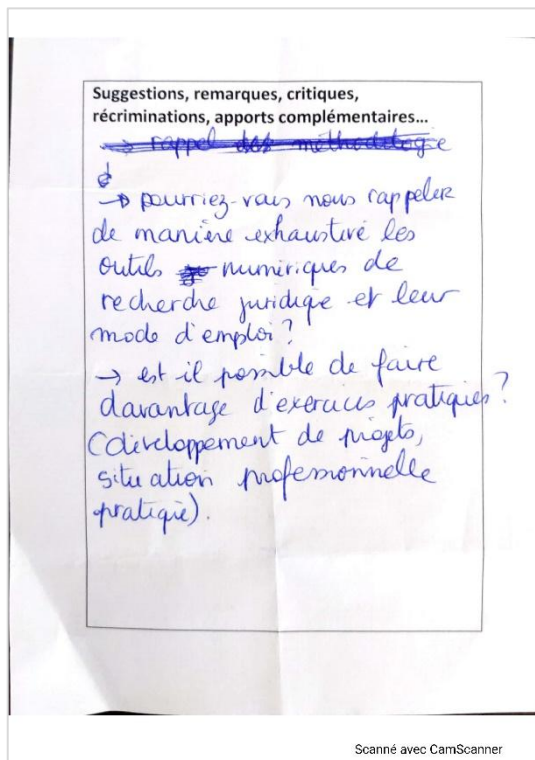 Suggestions, remarques, critiques,
récriminations, apports complémentaires...
→ rappel des méthodologie
→ pourriez-vous nous rappeler
de manière exhaustive les
outils numériques de
recherche juridique et leur
mode d'emploi ?
→ est il possible de faire
davantage d'exercices pratiques ?
(développement de projets,
situation professionnelle
pratique).
Scanné avec CamScanner